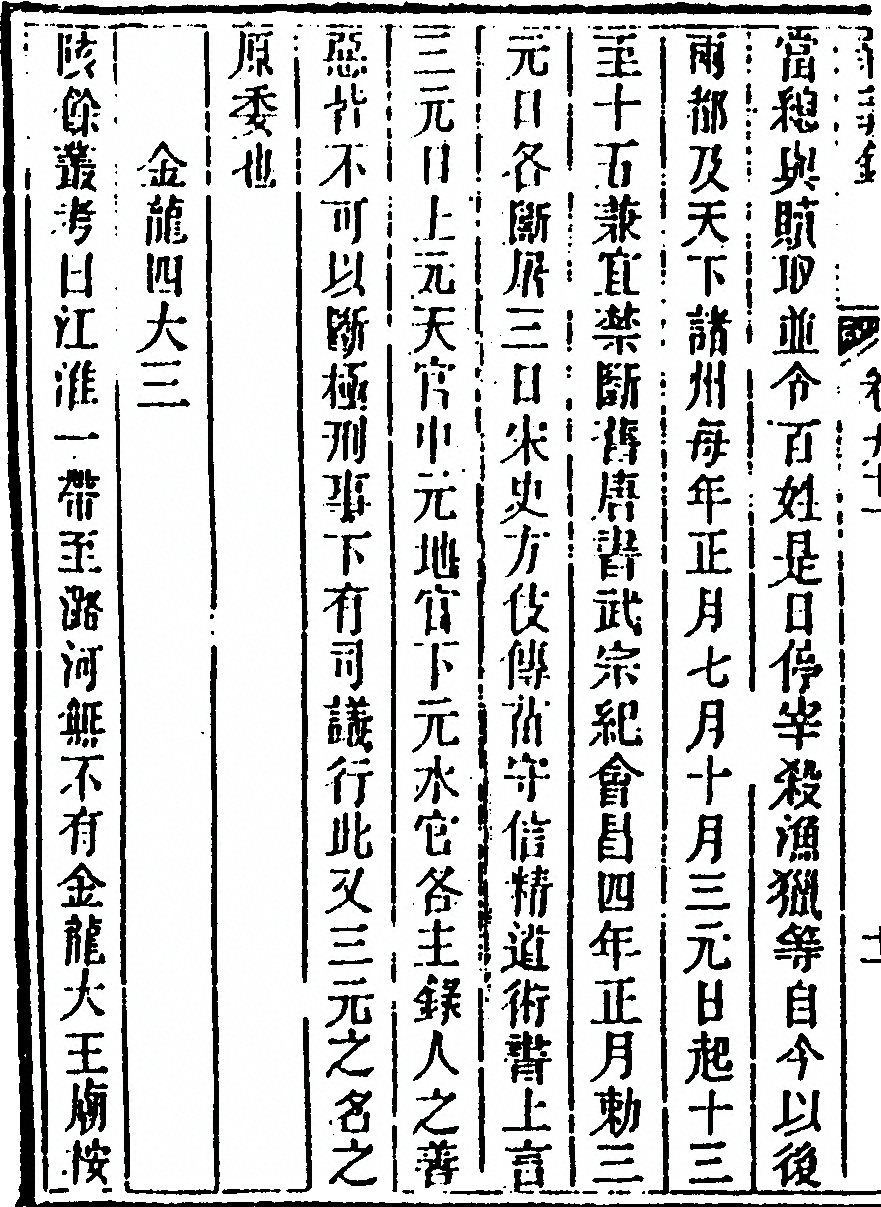 當總與贖取並令百姓是日停宰殺漁獵等自今以後
兩都及天下諸州每年正月七月十月三元日起十三
至十五兼宜禁斷舊唐書武宗紀會昌四年正月勅三
元日各斷屠三日宋史方伎傳苗守信精道術書上言
三元日上元天官中元地官下元水官各主錄人之善
惡皆不可以斷極刑事下有司議行此又三元之名之
原委也
金龍四大三
陔餘叢考曰江淮一帶至潞河無不有金龍大王廟按